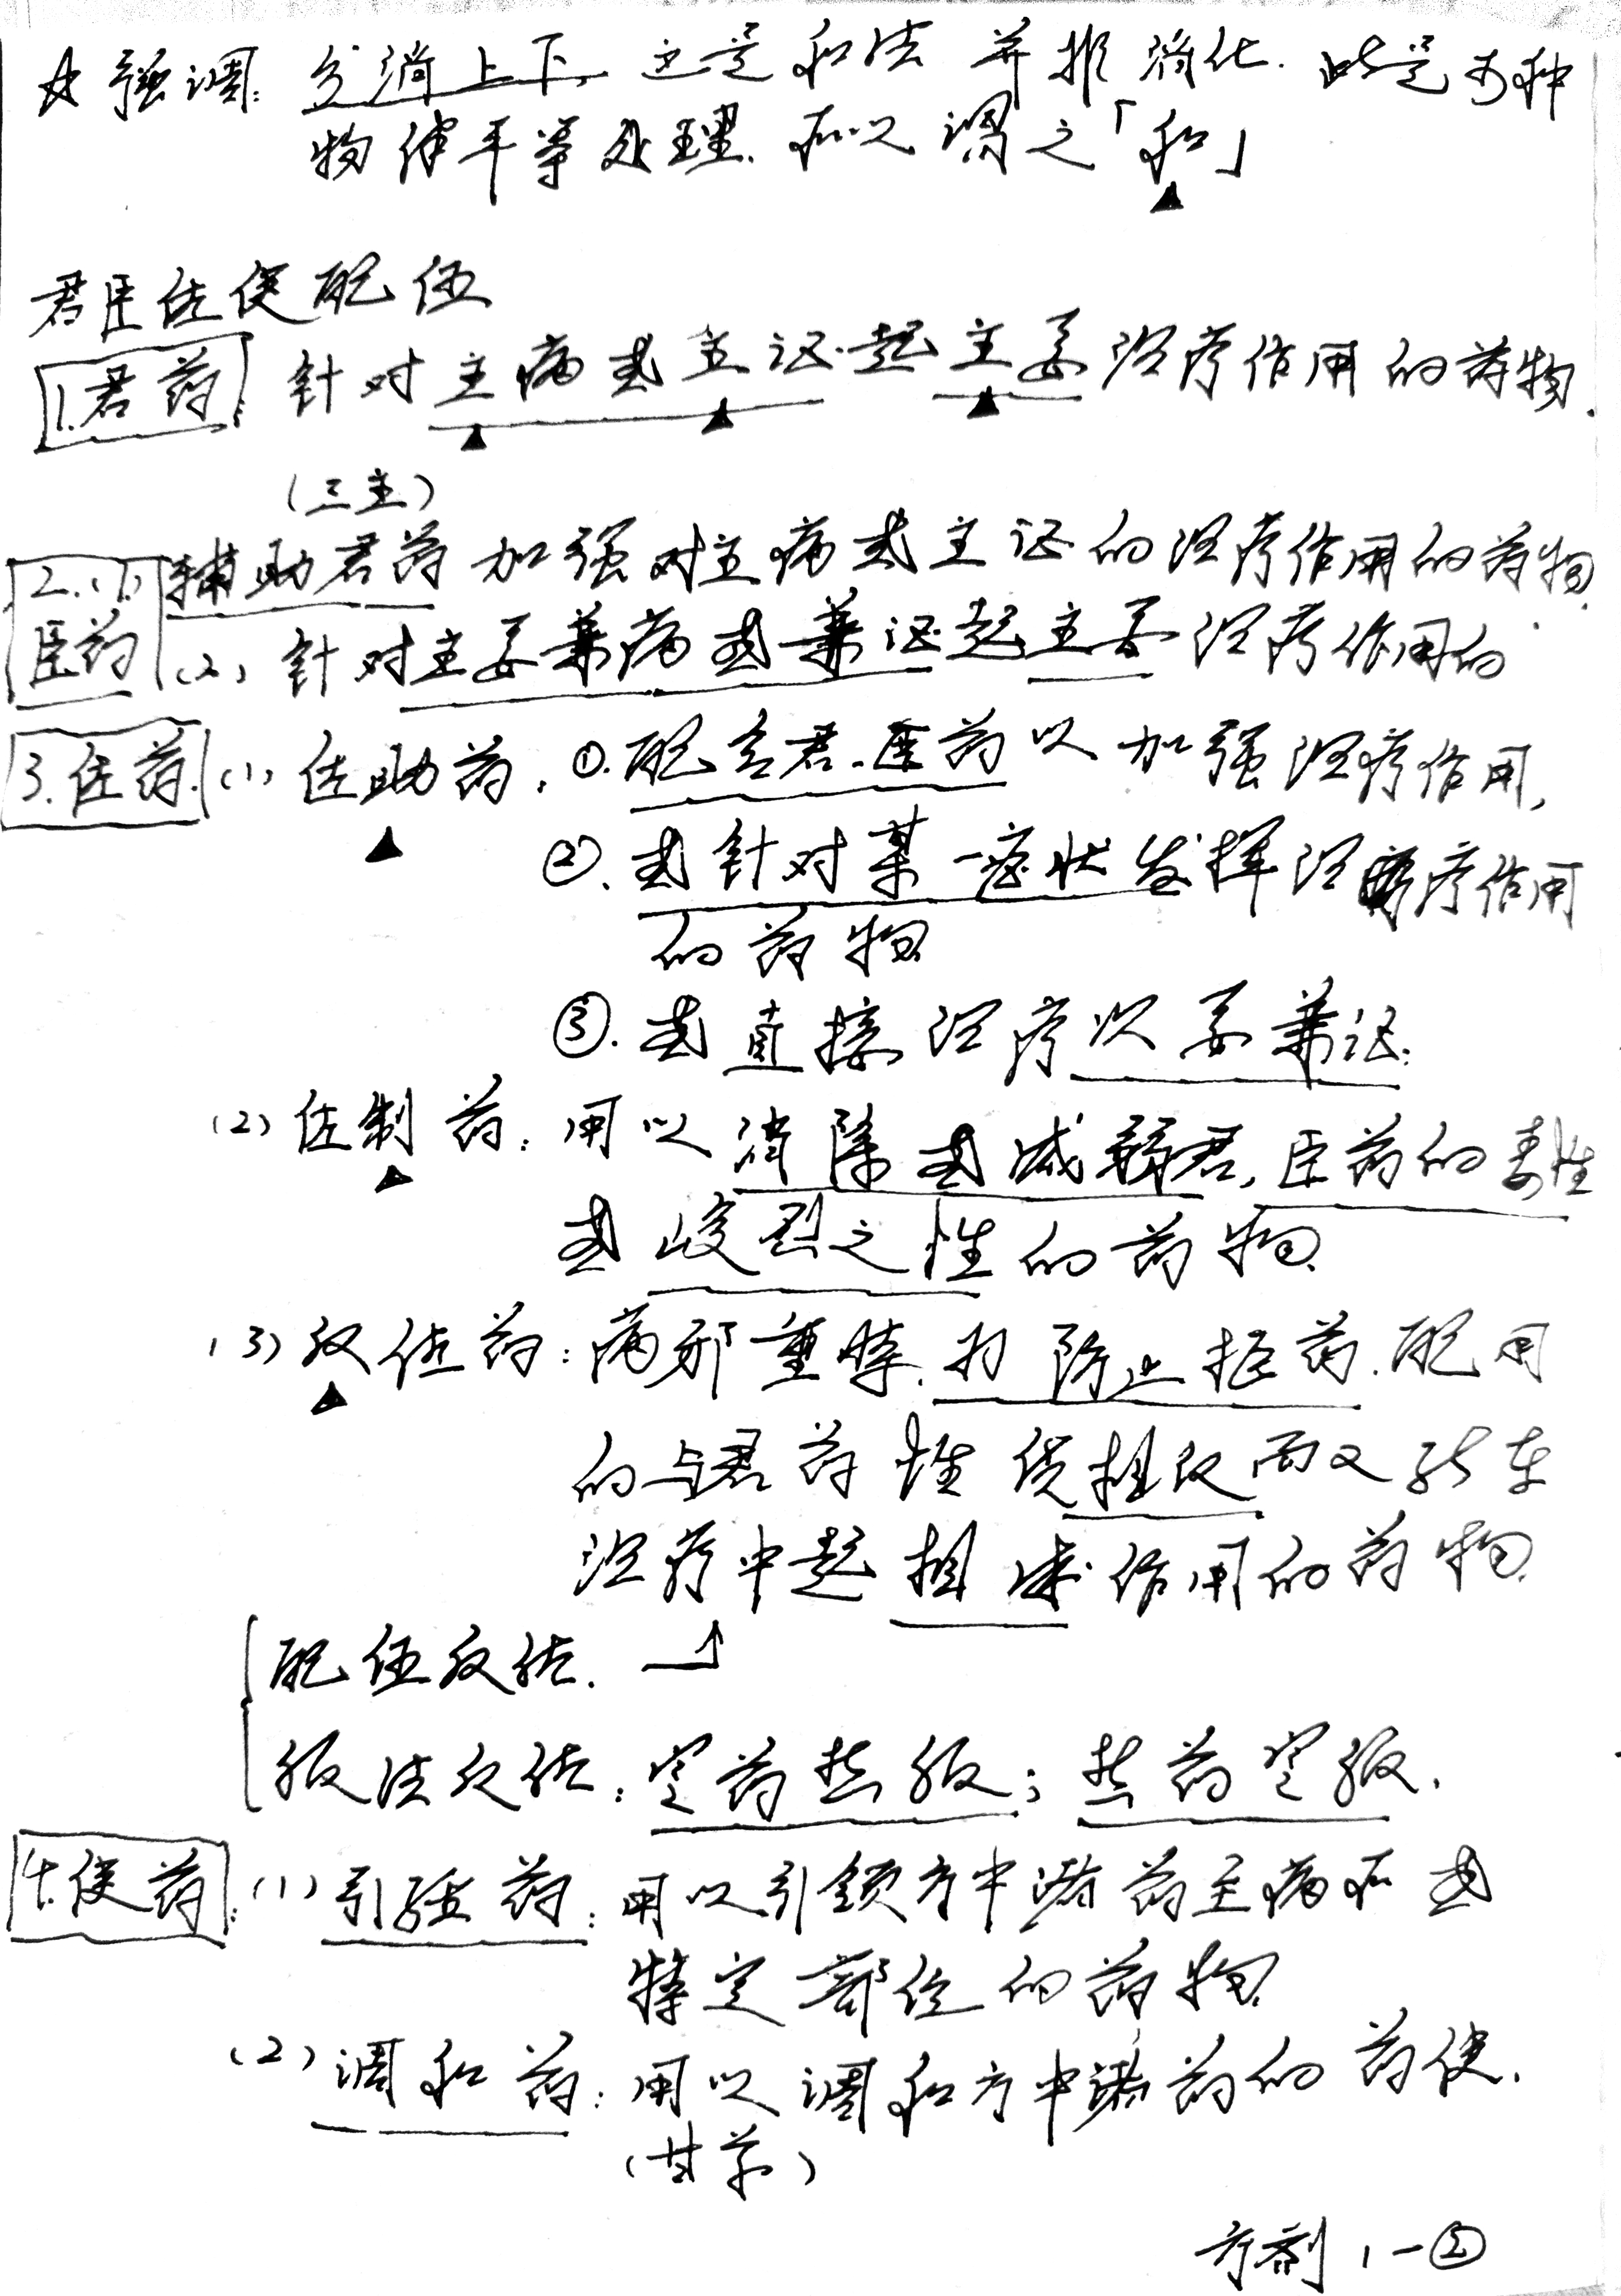 ☆强调:分消上下,这是和法 并非消化.此是多种
物体平等处理.所以谓之「和」
君臣佐使配伍
1.君药:针对主病或主证起主要治疗作用的药物.
(三主)
2.(1)辅助君药加强对主病或主证的治疗作用的药物.
臣药(2)针对主要兼病或兼证起主要治疗作用的
3.佐药.(1)佐助药:①.配合君.臣药以加强治疗作用,
②.或针对某一症状发挥治疗作用
的药物
③.或直接治疗次要兼证.
(2)佐制药:用以消除或减弱君,臣药的毒性
或峻烈之性的药物.
(3)反佐药:病邪重时.为防止拒药.配用
的与君药性味相反而又能在
治疗中起相成作用的药物.
配伍反佐.
服法反佐:寒药热服;热药寒服.
4.使药:(1)引经药:用以引领方中诸药至病所或
特定部位的药物.
(2)调和药:用以调和方中诸药的药使.
(甘草)
方剂 1-②